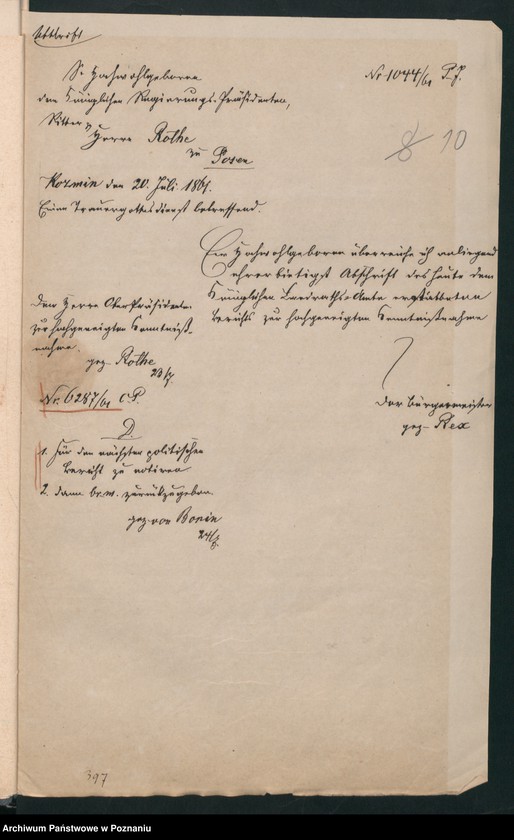 Abschrift
Nr 1044/61 P. J.
8 10
Sr. Hochwohlgeboren
dem Königlichen Regierungs-Präsidenten,
Ritter p Herrn Rothe
zu Posen
Kozmin den 20. Juli 1861.
Einen Trauergottesdienst betreffend.
Ew Hochwohlgeboren überreiche ich anliegend
ehrerbietigst Abschrift des heute dem
Königlichen Landraths-Amte erstatteten
Berichts zur hochgeneigten Kenntnißnahme
Der Bürgermeister
gez. Rex
Dem Herrn Oberpräsidenten
zur hochgeneigten Kenntniß-
nahme.
gez. Rothe
23/7.
Nr. 6287/61 O P.
D.
1. Für den nächsten politischen
Bericht zu notiren
2. dann br. m. zurückzugeben
gez. von Bonin
24/7.
397
Archiwum Państwowe w Poznaniu